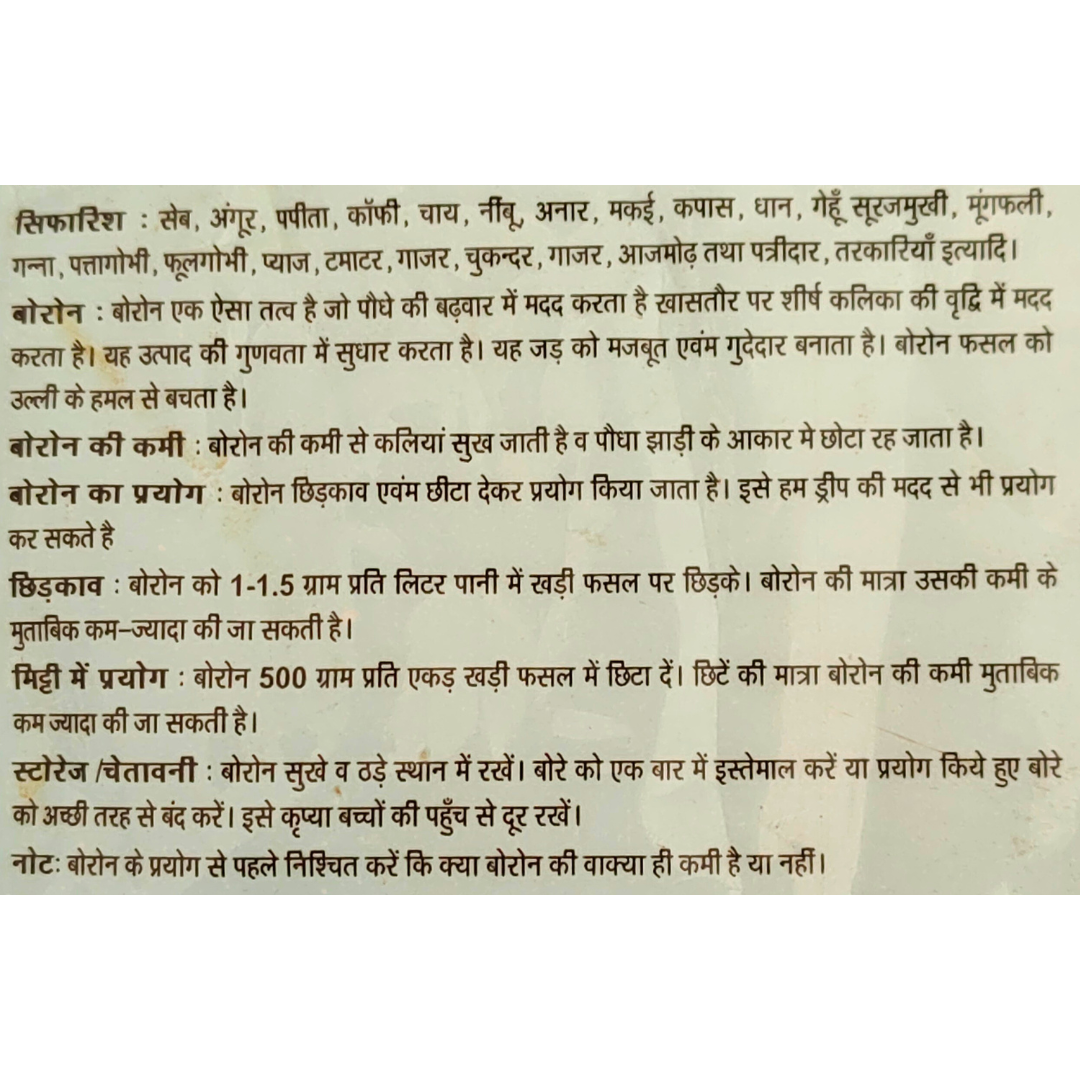 सिफारिश : सेब, अंगूर, पपीता, कॉफी, चाय, नींबू, अनार, मकई, कपास, धान, गेहूँ सूरजमुखी, मूंगफली,
गन्ना, पत्तागोभी, फूलगोभी, प्याज, टमाटर, गाजर, चुकन्दर, गाजर, आजमोढ़ तथा पत्रीदार, तरकारियाँ इत्यादि।
बोरोन : बोरोन एक ऐसा तत्व है जो पौधे की बढ़वार में मदद करता है खासतौर पर शीर्ष कलिका की वृद्वि में मदद
करता है। यह उत्पाद की गुणवता में सुधार करता है। यह जड़ को मजबूत एवंम गुदेदार बनाता है। बोरोन फसल को
उल्ली के हमल से बचता है।
बोरोन की कमी : बोरोन की कमी से कलियां सुख जाती है व पौधा झाड़ी के आकार मे छोटा रह जाता है।
बोरोन का प्रयोग : बोरोन छिड़काव एवंम छीटा देकर प्रयोग किया जाता है। इसे हम ड्रीप की मदद से भी प्रयोग
कर सकते है
छिड़काव : बोरोन को 1-1.5 ग्राम प्रति लिटर पानी में खड़ी फसल पर छिड़के। बोरोन की मात्रा उसकी कमी के
मुताबिक कम-ज्यादा की जा सकती है।
मिट्टी में प्रयोग : बोरोन 500 ग्राम प्रति एकड़ खड़ी फसल में छिटा दें। छिटें की मात्रा बोरोन की कमी मुताबिक
कम ज्यादा की जा सकती है।
स्टोरेज /चेतावनी : बोरोन सुखे व ठडे़ स्थान में रखें। बोरे को एक बार में इस्तेमाल करें या प्रयोग किये हुए बोरे
को अच्छी तरह से बंद करें। इसे कृप्या बच्चों की पहुँच से दूर रखें।
नोटः बोरोन के प्रयोग से पहले निश्चित करें कि क्या बोरोन की वाक्या ही कमी है या नहीं।